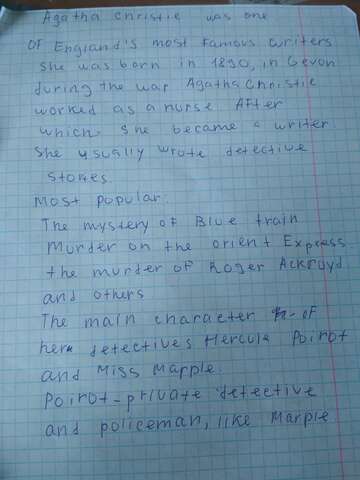 Agatha Christie was one
OF England's most famous writers
She was born in 1890, in Devon
during the war Agatha Christie
worked as a nurse After
which she became a writer
She usually wrote detective
stories
Most popular:
The mystery of Blue train
Murder on the orient Express
the murder of Roger Ackroyd
and others
The main character of
her detectives Hercule Poirot
and Miss Marple
Poirot - private detective
and policeman, like Marple